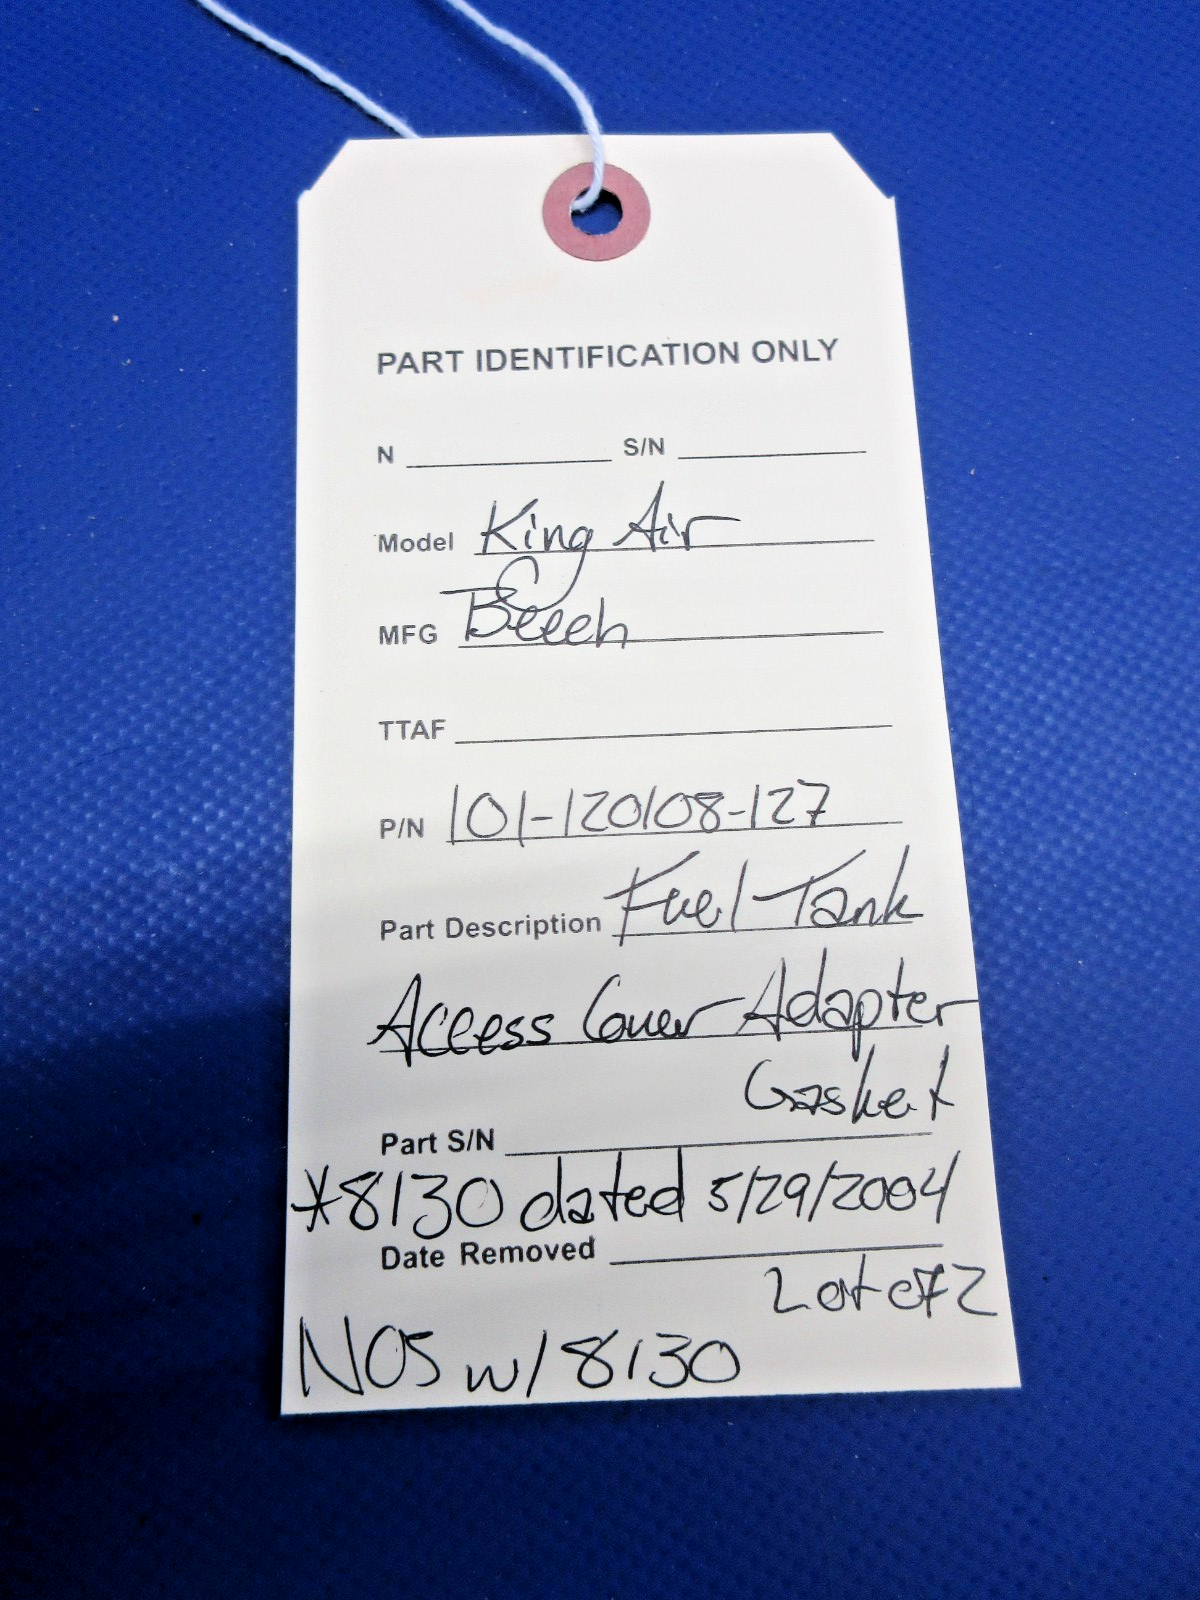 PART IDENTIFICATION ONLY
N S/N
Model King Air
MFG Beech
TTAF
P/N 101-120108-127
Part Description Fuel Tank
Access Cover Adapter
Gasket
Part S/N
*8130 dated 5/29/2004
Date Removed
Lot of 2
NOS w/ 8130